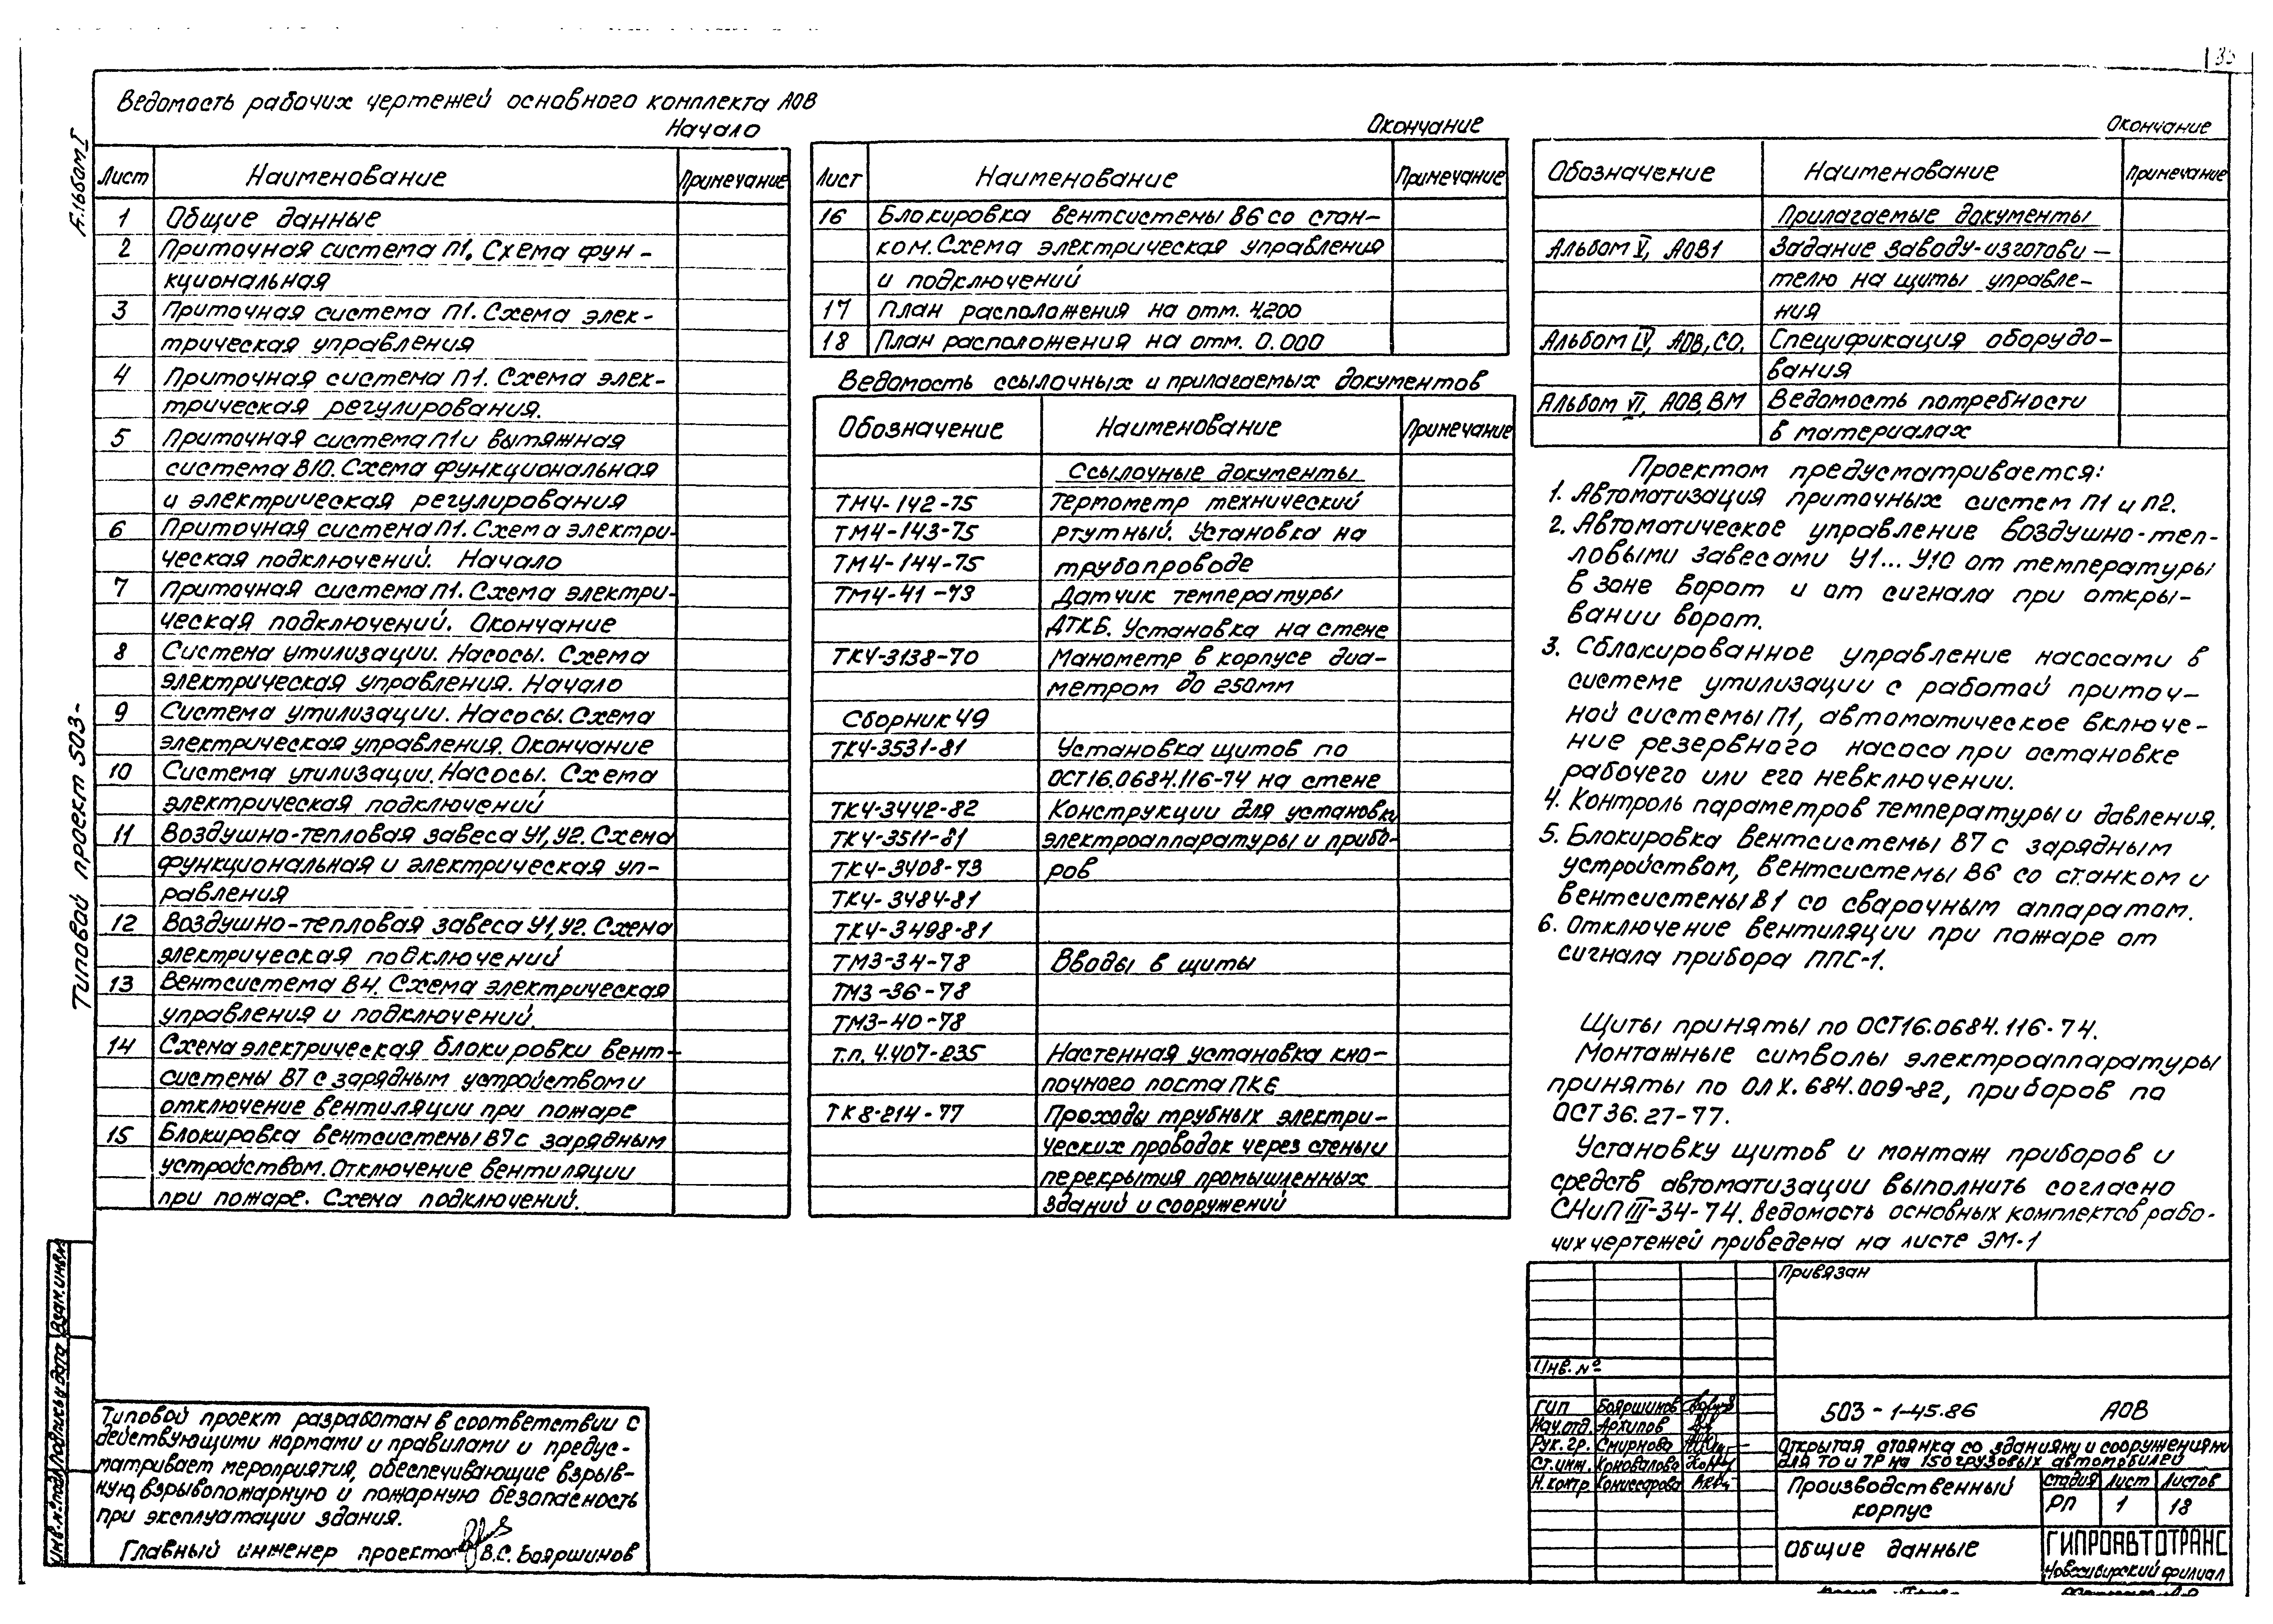 35
Альбом I
Типовой проект 503-
Ведомость рабочих чертежей основного комплекта АОВ
Начало
Лист Наименование Примечание
1 Общие данные
2 Приточная система П1. Схема фун-
кциональная
3 Приточная система П1. Схема элек-
трическая управления
4 Приточная система П1. Схема элек-
трическая регулирования.
5 Приточная система П1 и вытяжная
система В10. Схема функциональная
и электрическая регулирования
6 Приточная система П1. Схема электри-
ческая подключений. Начало
7 Приточная система П1. Схема электри-
ческая подключений. Окончание
8 Система утилизации. Насосы. Схема
электрическая управления. Начало
9 Система утилизации. Насосы. Схема
электрическая управления. Окончание
10 Система утилизации. Насосы. Схема
электрическая подключений
11 Воздушно-тепловая завеса У1, У2. Схема
функциональная и электрическая уп-
равления
12 Воздушно-тепловая завеса У1, У2. Схема
электрическая подключений
13 Вентсистема В4. Схема электрическая
управления и подключений.
14 Схема электрическая блокировки вент-
системы В7 с зарядным устройством и
отключение вентиляции при пожаре
15 Блокировка вентсистемы В7 с зарядным
устройством. Отключение вентиляции
при пожаре. Схема подключений.
Окончание
Лист Наименование Примечание
16 Блокировка вентсистемы В6 со стан-
ком. Схема электрическая управления
и подключений
17 План расположения на отм. 4.200
18 План расположения на отм. 0.000
Ведомость ссылочных и прилагаемых документов
Обозначение Наименование Примечание
Ссылочные документы
ТМ4-142-75 Термометр технический
ТМ4-143-75 ртутный. Установка на
ТМ4-144-75 трубопроводе
ТМ4-41-73 Датчик температуры
ДТКБ. Установка на стене
ТК4-3138-70 Манометр в корпусе диа-
метром до 250мм
Сборник 49
ТК4-3531-81 Установка щитов по
ОСТ16.0684.116-74 на стене
ТК4-3442-82 Конструкции для установки
ТК4-3511-81 электроаппаратуры и прибо-
ТК4-3408-73 ров
ТК4-3484-81
ТК4-3498-81
ТМ3-34-78 Вводы в щиты
ТМ3-36-78
ТМ3-40-78
т.п. 4.407-235 Настенная установка кно-
почного поста ПКЕ
ТК8-214-77 Проходы трубных электри-
ческих проводок через стены и
перекрытия промышленных
зданий и сооружений
Окончание
Обозначение Наименование Примечание
Прилагаемые документы
Альбом V, АОВ1 Задание заводу-изготови-
телю на щиты управле-
ния
Альбом IV, АОВ, СО. Спецификация оборудо-
вания
Альбом VI, АОВ, ВМ Ведомость потребности
в материалах
Проектом предусматривается:
1. Автоматизация приточных систем П1 и П2.
2. Автоматическое управление воздушно-теп-
ловыми завесами У1... У10 от температуры
в зоне ворот и от сигнала при откры-
вании ворот.
3. Сблокированное управление насосами в
системе утилизации с работой приточ-
ной системы П1, автоматическое включе-
ние резервного насоса при остановке
рабочего или его невключении.
4. Контроль параметров температуры и давления.
5. Блокировка вентсистемы В7 с зарядным
устройством, вентсистемы В6 со станком и
вентсистемы В1 со сварочным аппаратом.
6. Отключение вентиляции при пожаре от
сигнала прибора ППС-1.
Щиты приняты по ОСТ16.0684.116-74.
Монтажные символы электроаппаратуры
приняты по ОЛХ.684.009-82, приборов по
ОСТ36.27-77.
Установку щитов и монтаж приборов и
средств автоматизации выполнить согласно
СНиП III-34-74. Ведомость основных комплектов рабо-
чих чертежей приведена на листе ЭМ-1
Типовой проект разработан в соответствии с
действующими нормами и правилами и предус-
матривает мероприятия, обеспечивающие взрыв-
ную, взрывопожарную и пожарную безопасность
при эксплуатации здания.
Главный инженер проекта В.С. Бояршинов
Инв. № подл. Подпись и дата Взам. инв. №
Привязан
Инв. №
ГИП Бояршинов
Нач. отд. Архипов
Рук. гр. Смирнова
Ст. инж. Коновалова
Н. контр. Комиссарова
503-1-45.86 АОВ
Открытая стоянка со зданиями и сооружениями
для ТО и ТР на 150 грузовых автомобилей
Производственный
корпус
стадия Лист Листов
РП 1 18
Общие данные
ГИПРОАВТОТРАНС
Новосибирский филиал